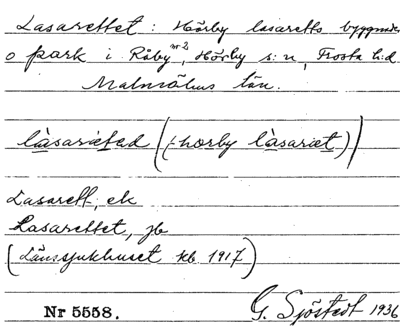 Lasarettet: Hörby lasaretts byggnader
o park i Råby nr 2, Hörby s:n, Frosta h:d
Malmöhus län.
làsarietad (/-hœrby làsariet)/
Lasarett, ek
Lasarettet, jb
(Länssjukhuset kb 1917)
Nr 5558. G. Sjöstedt 1936